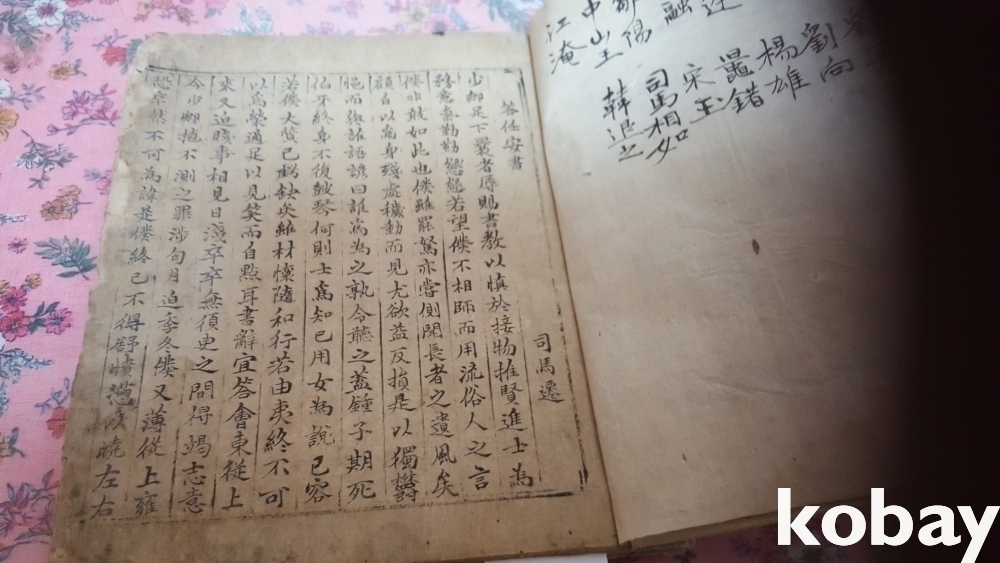 劉向
楊雄
融 鼂錯
鄒陽 宋玉
中山王 司馬相如
江淹 韓退之
答任安書 司馬遷
少卿足下曩者辱賜書教以慎於接物推賢進士為
務意氣勤勤懇懇若望僕不相師而用流俗人之言
僕非敢如此也僕雖罷駑亦嘗側聞長者之遺風矣
顧自以爲身殘處穢動而見尤欲益反損是以獨欝
悒而與誰語諺曰誰爲爲之孰令聽之蓋鍾子期死
伯牙終身不復皷琴何則士爲知己用女爲說己容
若僕大質已虧缺矣雖材懷隨和行若由夷終不可
以爲榮適足以見笑而自點耳書辭宜答會東從上
來又迫賤事相見日淺卒卒無須臾之間得竭志意
今少卿抱不測之罪涉旬月迫季冬僕又薄從上雍
恐卒然不可爲諱是僕終已不得舒憤懣以曉左右
kobay